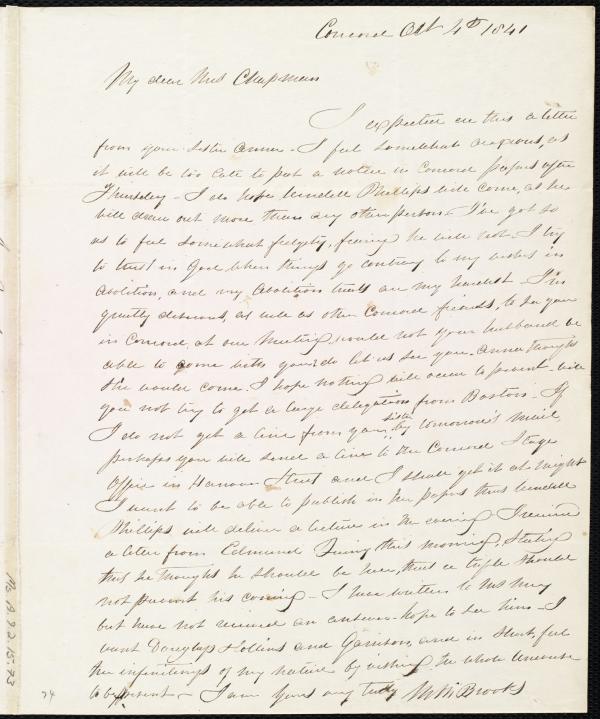 Concord Oct 4th 1841
My dear Mrs Chapman
I expected ere this a letter
from your sister Anna - I feel somewhat anxious, as
it will be too late to put a notice in Concord papers after
Thursday - I do hope Wendell Phillips will come, as he
will draw out more than any other person - I've got so
as to feel somewhat fidgety, fearing he will not - I try
to trust in God when things go contrary to my wishes in
abolition, and my abolition trials are my hardest - I'm
greatly desirous, as well as other Concord friends, to see you
in Concord, at our meeting, would not your husband be
able to come with you, do let us see you - Anna thought
she would come - I hope nothing will occur to prevent - will
you not try to get a large delegation from Boston. If
I do not get a line from your sister by tomorrow's mail,
perhaps you will send a line to the Concord Stage
Office in Hanover Street and I shall get it at night
I want to be able to publish in the papers that Wendell
Phillips will deliver a lecture in the evening I received
a letter from Edmund Quincy this morning, stating
that he thought he should be here, that a trifle should
not prevent his coming - I have written to Mr May
but have not received an answer - hope to see him - I
want Douglass Collins and Garrison, and in short, feel
the infinitings of my nature by wishing the whole universe
to be present - I am yours very truly M M Brooks
Ms. A. 9. 2. 15. 73
74